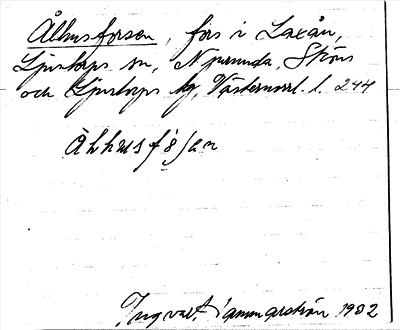 Ålhusforsen, fors i Laxån,
Ljustorps sn, Njurunda, Sköns
och Ljustorps tg, Västernorrl. l. 244
Åhhusfỏsen
Ingvart Hammarström 1932